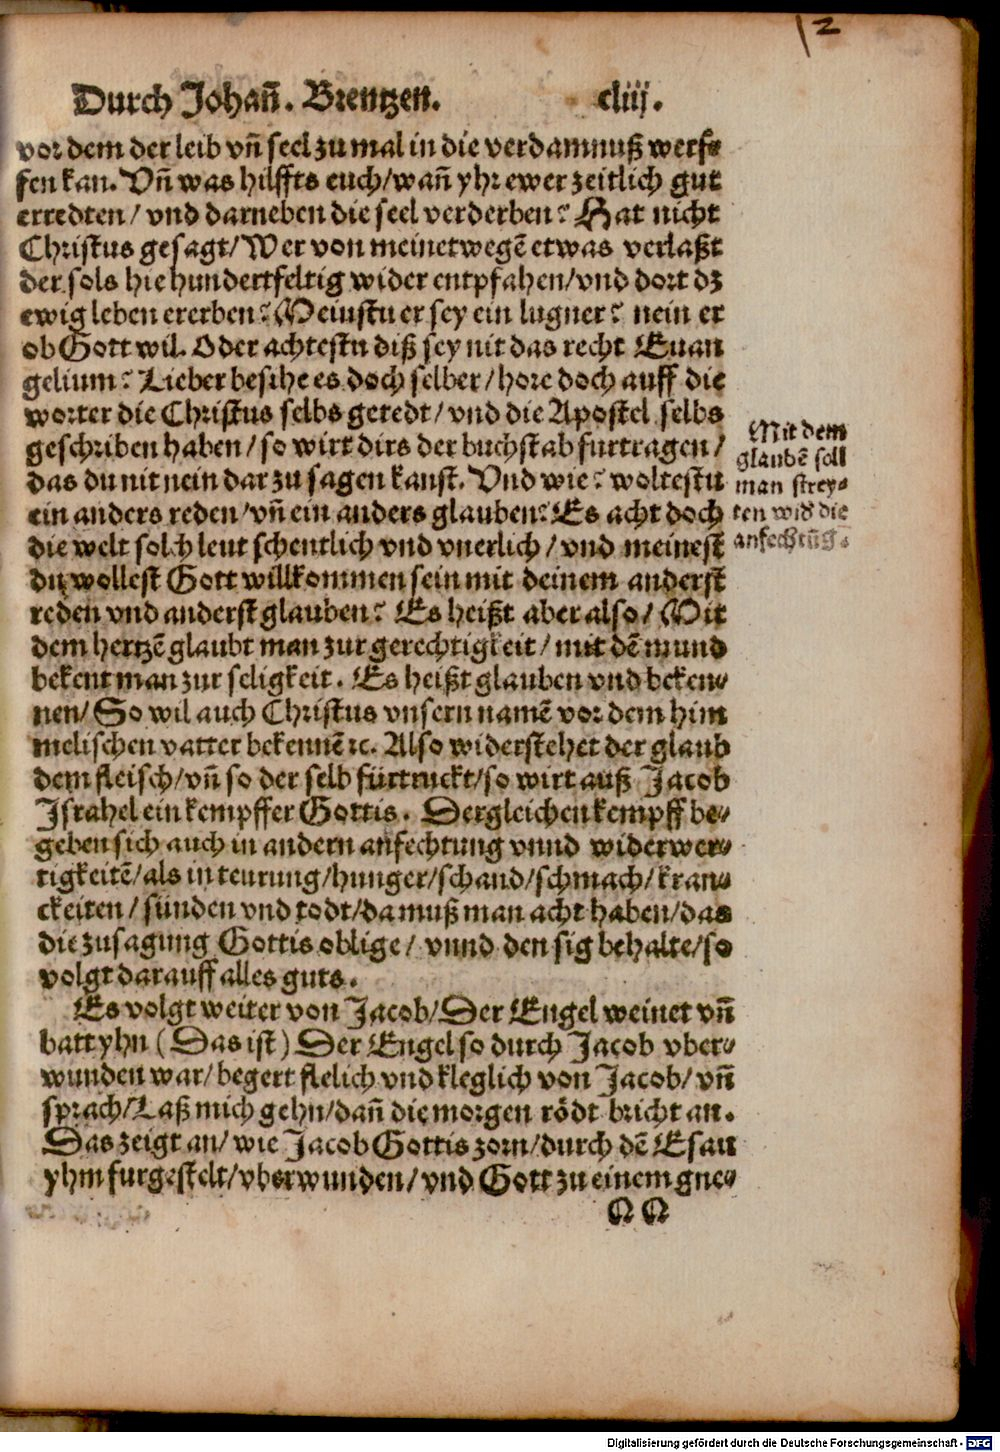 12
Durch Johañ. Brentzen. cliij.
vor dem der leib vñ seel zu mal in die verdamnuß werf⸗
fen kan. Vñ was hilffts euch/wañ yhr ewer zeitlich gut
erredten/ vnd darneben die seel verderben? Hat nicht
Christus gesagt/Wer von meinetwegē etwas verlaßt
der sols hie hundertfeltig wider entpfahen/vnd dort dz
ewig leben ererben? Meinstu er sey ein lugner? nein er
ob Gott wil. Oder achtestu diß sey nit das recht Euan
gelium? Lieber besihe es doch selber/hore doch auff die
worter die Christus selbs geredt/vnd die Apostel selbs
geschriben haben/so wirt dirs der buchstab furtragen/
das du nit nein dar zu sagen kanst. Vnd wie? woltestu
ein anders reden/vñ ein anders glauben? Es acht doch
die welt solch leut schentlich vnd vnerlich/vnd meinest
du wollest Gott willkommen sein mit deinem anderst
reden vnd anderst glauben? Es heißt aber also/Mit
dem hertzē glaubt man zur gerechtigkeit/mit dē mund
bekent man zur seligkeit. Es heißt glauben vnd beken⸗
nen/So wil auch Christus vnsern namē vor dem him
melischen vatter bekennē ꝛc. Also widerstehet der glaub
dem fleisch/vñ so der selb fürtruckt/so wirt auß Jacob
Israhel ein kempffer Gottis. Dergleichen kempff be⸗
geben sich auch in andern anfechtung vnnd widerwer⸗
tigkeitē/als in teurung/hunger/schand/schmach/kran⸗
ckeiten/sünden vnd todt/da muß man acht haben/das
die zusagung Gottis oblige/ vnnd den sig behalte/so
volgt darauff alles guts.
Es volgt weiter von Jacob/Der Engel weinet vñ
batt yhn (Das ist) Der Engel so durch Jacob vber⸗
wunden war/begert flelich vnd kleglich von Jacob/vñ
sprach/Laß mich gehn/dañ die morgen rödt bricht an.
Das zeigt an/wie Jacob Gottis zorn/durch dē Esau
yhm furgestelt/vberwunden/vnd Gott zu einem gne⸗
Q Q
Mit dem
glaubē soll
man strey⸗
ten wid die
anfechtūg.
Digitalisierung gefördert durch die Deutsche Forschungsgemeinschaft - DFG